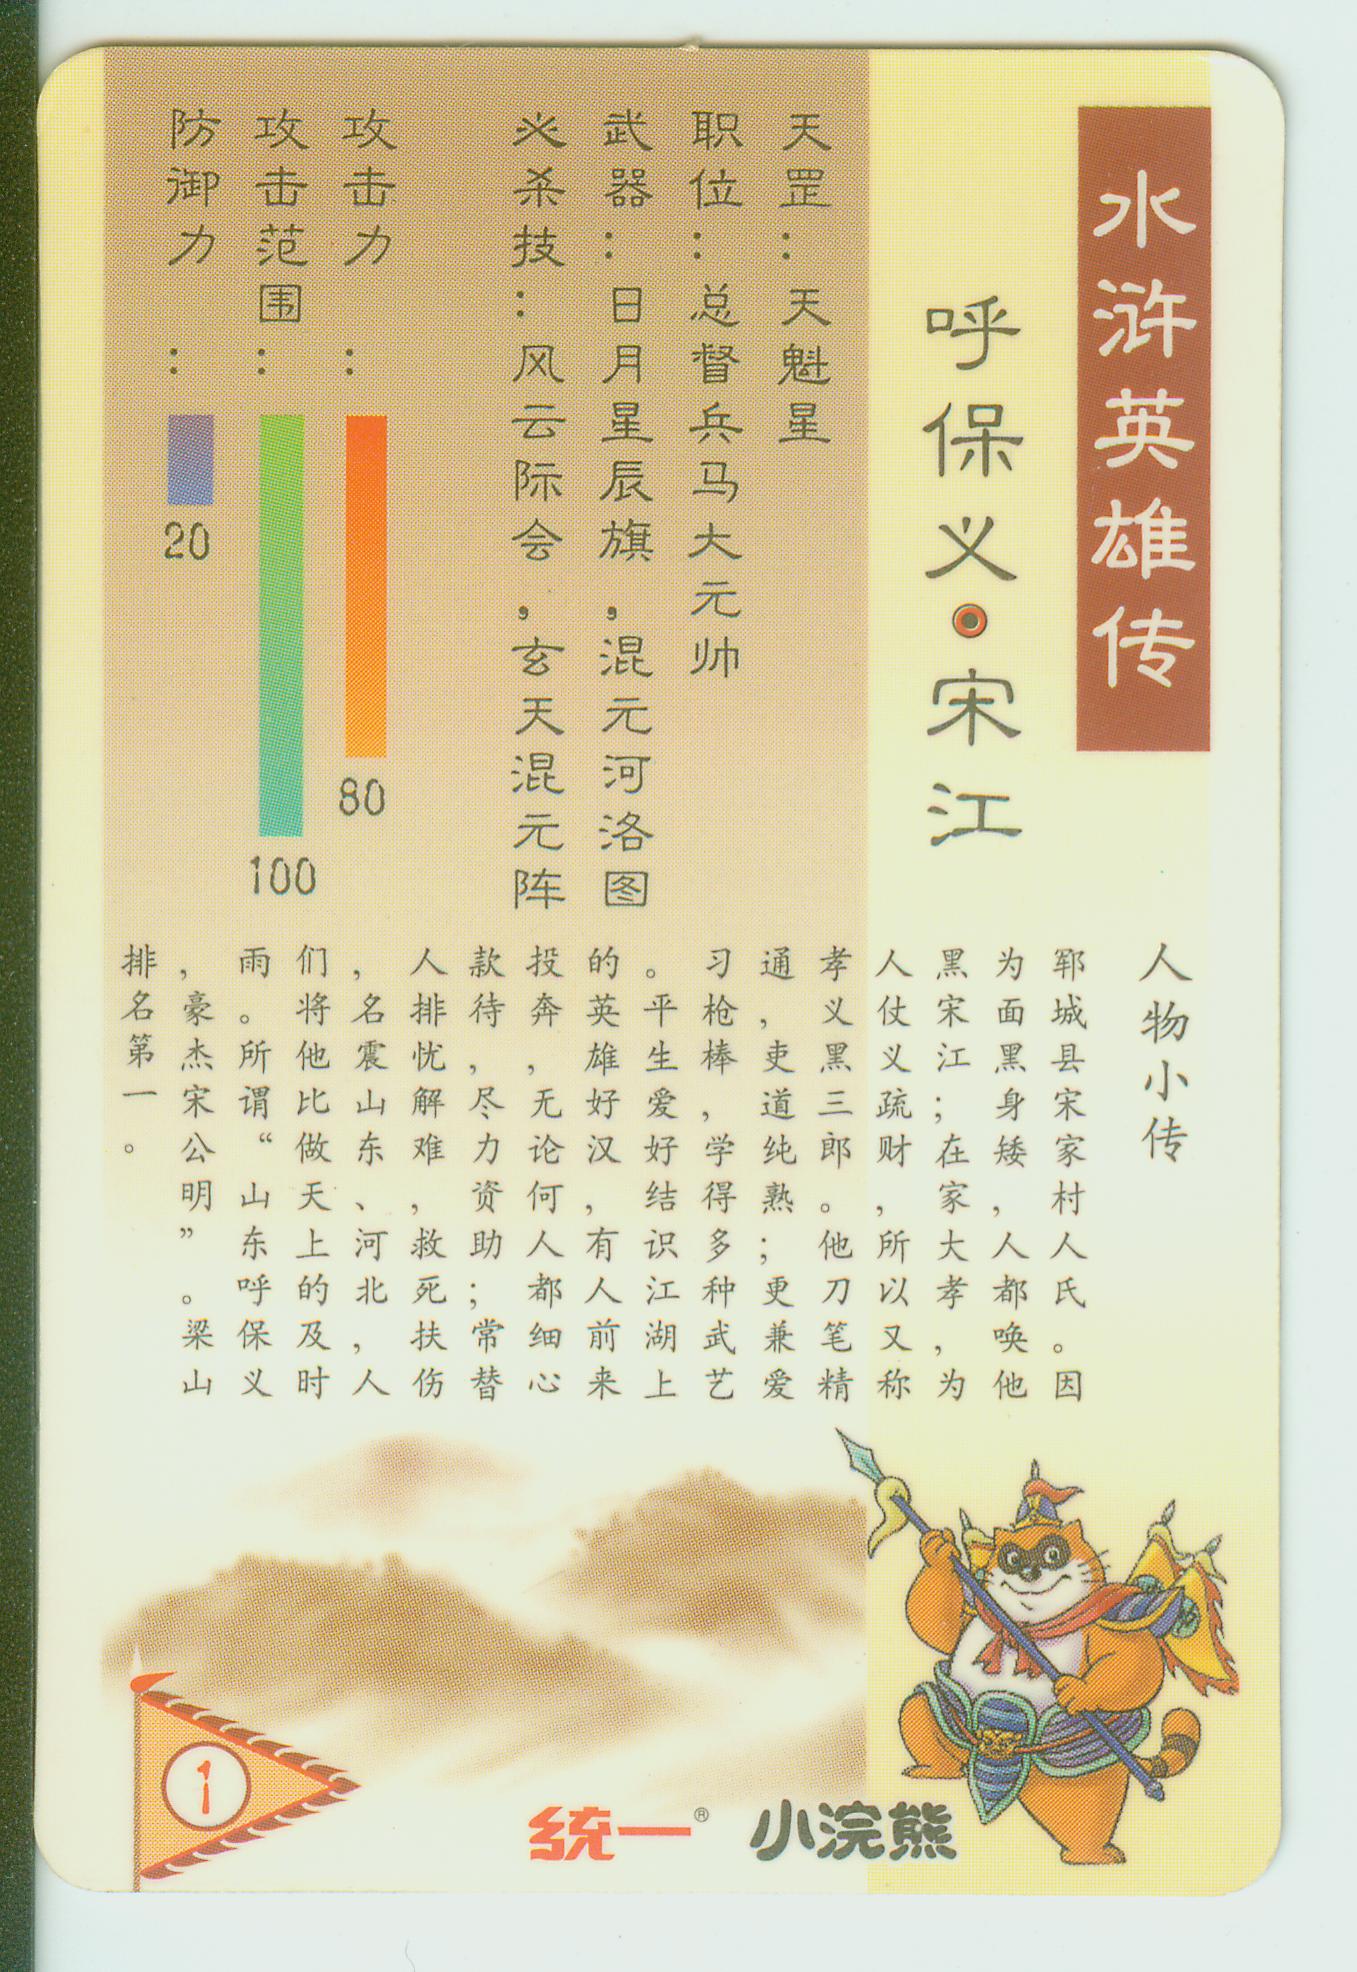 水浒英雄传
呼保义·宋江
天罡：天魁星
职位：总督兵马大元帅
武器：日月星辰旗，混元河洛图
必杀技：风云际会，玄天混元阵
攻击力：80
攻击范围：100
防御力：20
人物小传
郓城县宋家村人氏。因
为面黑身矮，人都唤他
黑宋江；在家大孝，为
人仗义疏财，所以又称
孝义黑三郎。他刀笔精
通，吏道纯熟；更兼爱
习枪棒，学得多种武艺
。平生爱好结识江湖上
的英雄好汉，有人前来
投奔，无论何人都细心
款待，尽力资助；常替
人排忧解难，救死扶伤
，名震山东、河北，人
们将他比做天上的及时
雨。所谓“山东呼保义
，豪杰宋公明”。梁山
排名第一。
1
统一® 小浣熊